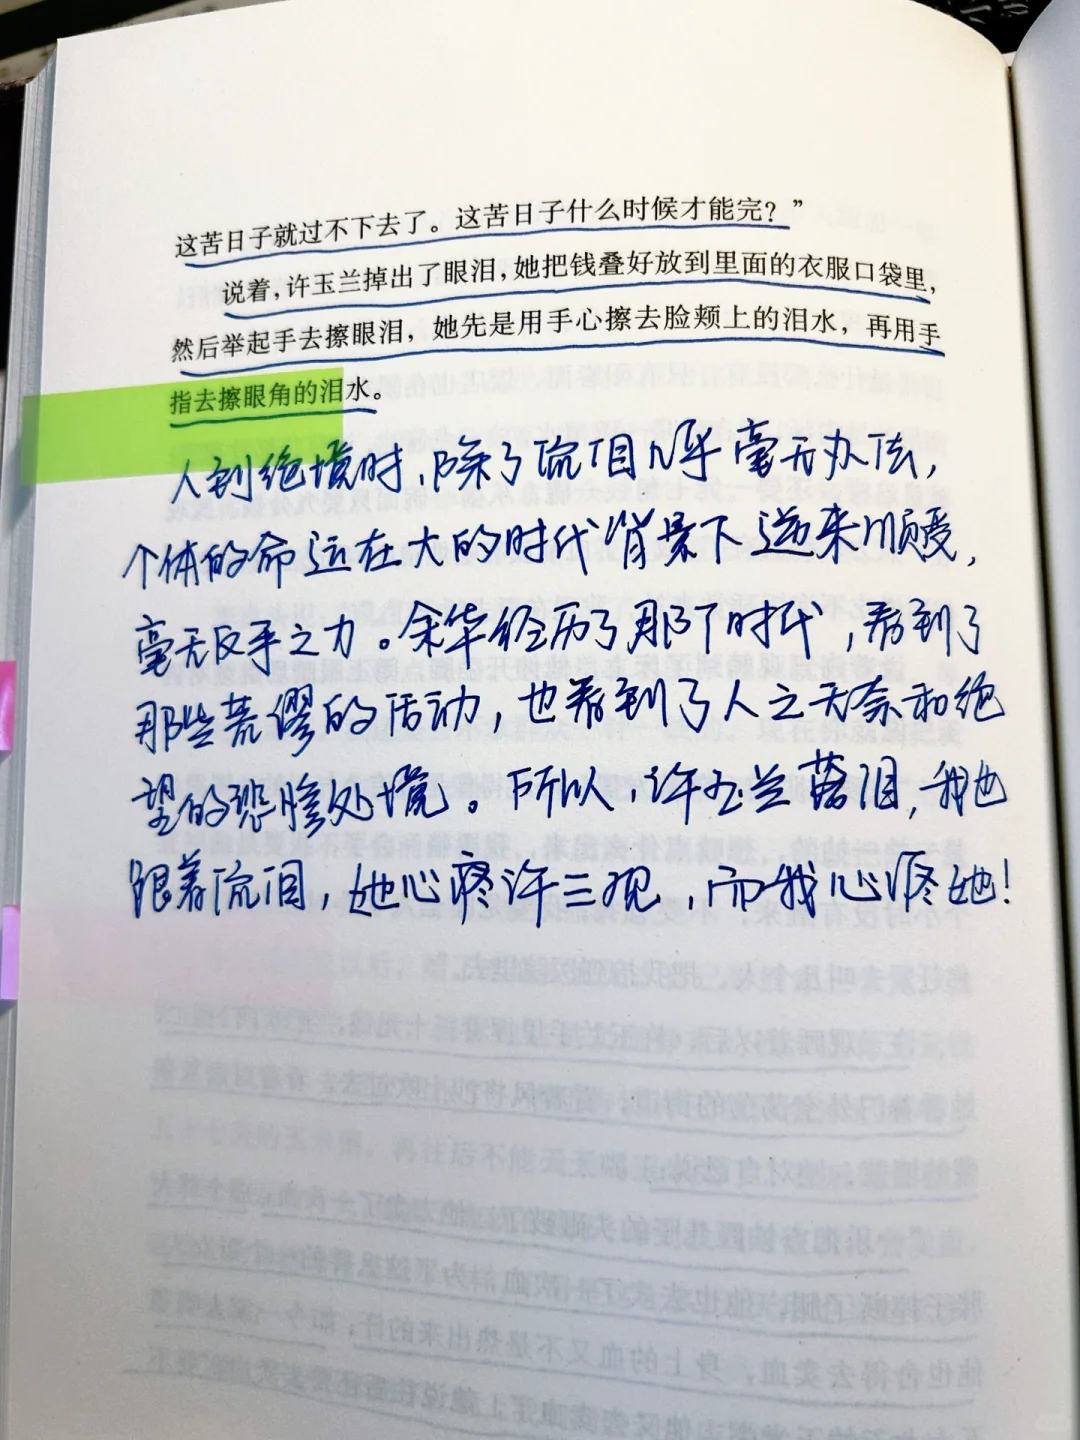 这苦日子就过不下去了。这苦日子什么时候才能完？”
说着，许玉兰掉出了眼泪，她把钱叠好放到里面的衣服口袋里，
然后举起手去擦眼泪，她先是用手心擦去脸颊上的泪水，再用手
指去擦眼角的泪水。
人到绝境时，除了流泪几乎毫无办法，
个体的命运在大的时代背景下逆来顺受，
毫无反手之力。余华经历了那个时代，看到了
那些荒谬的活动，也看到了人之无奈和绝
望的悲惨处境。所以，许玉兰落泪，我也
跟着流泪，她心疼许三观，而我心疼她！